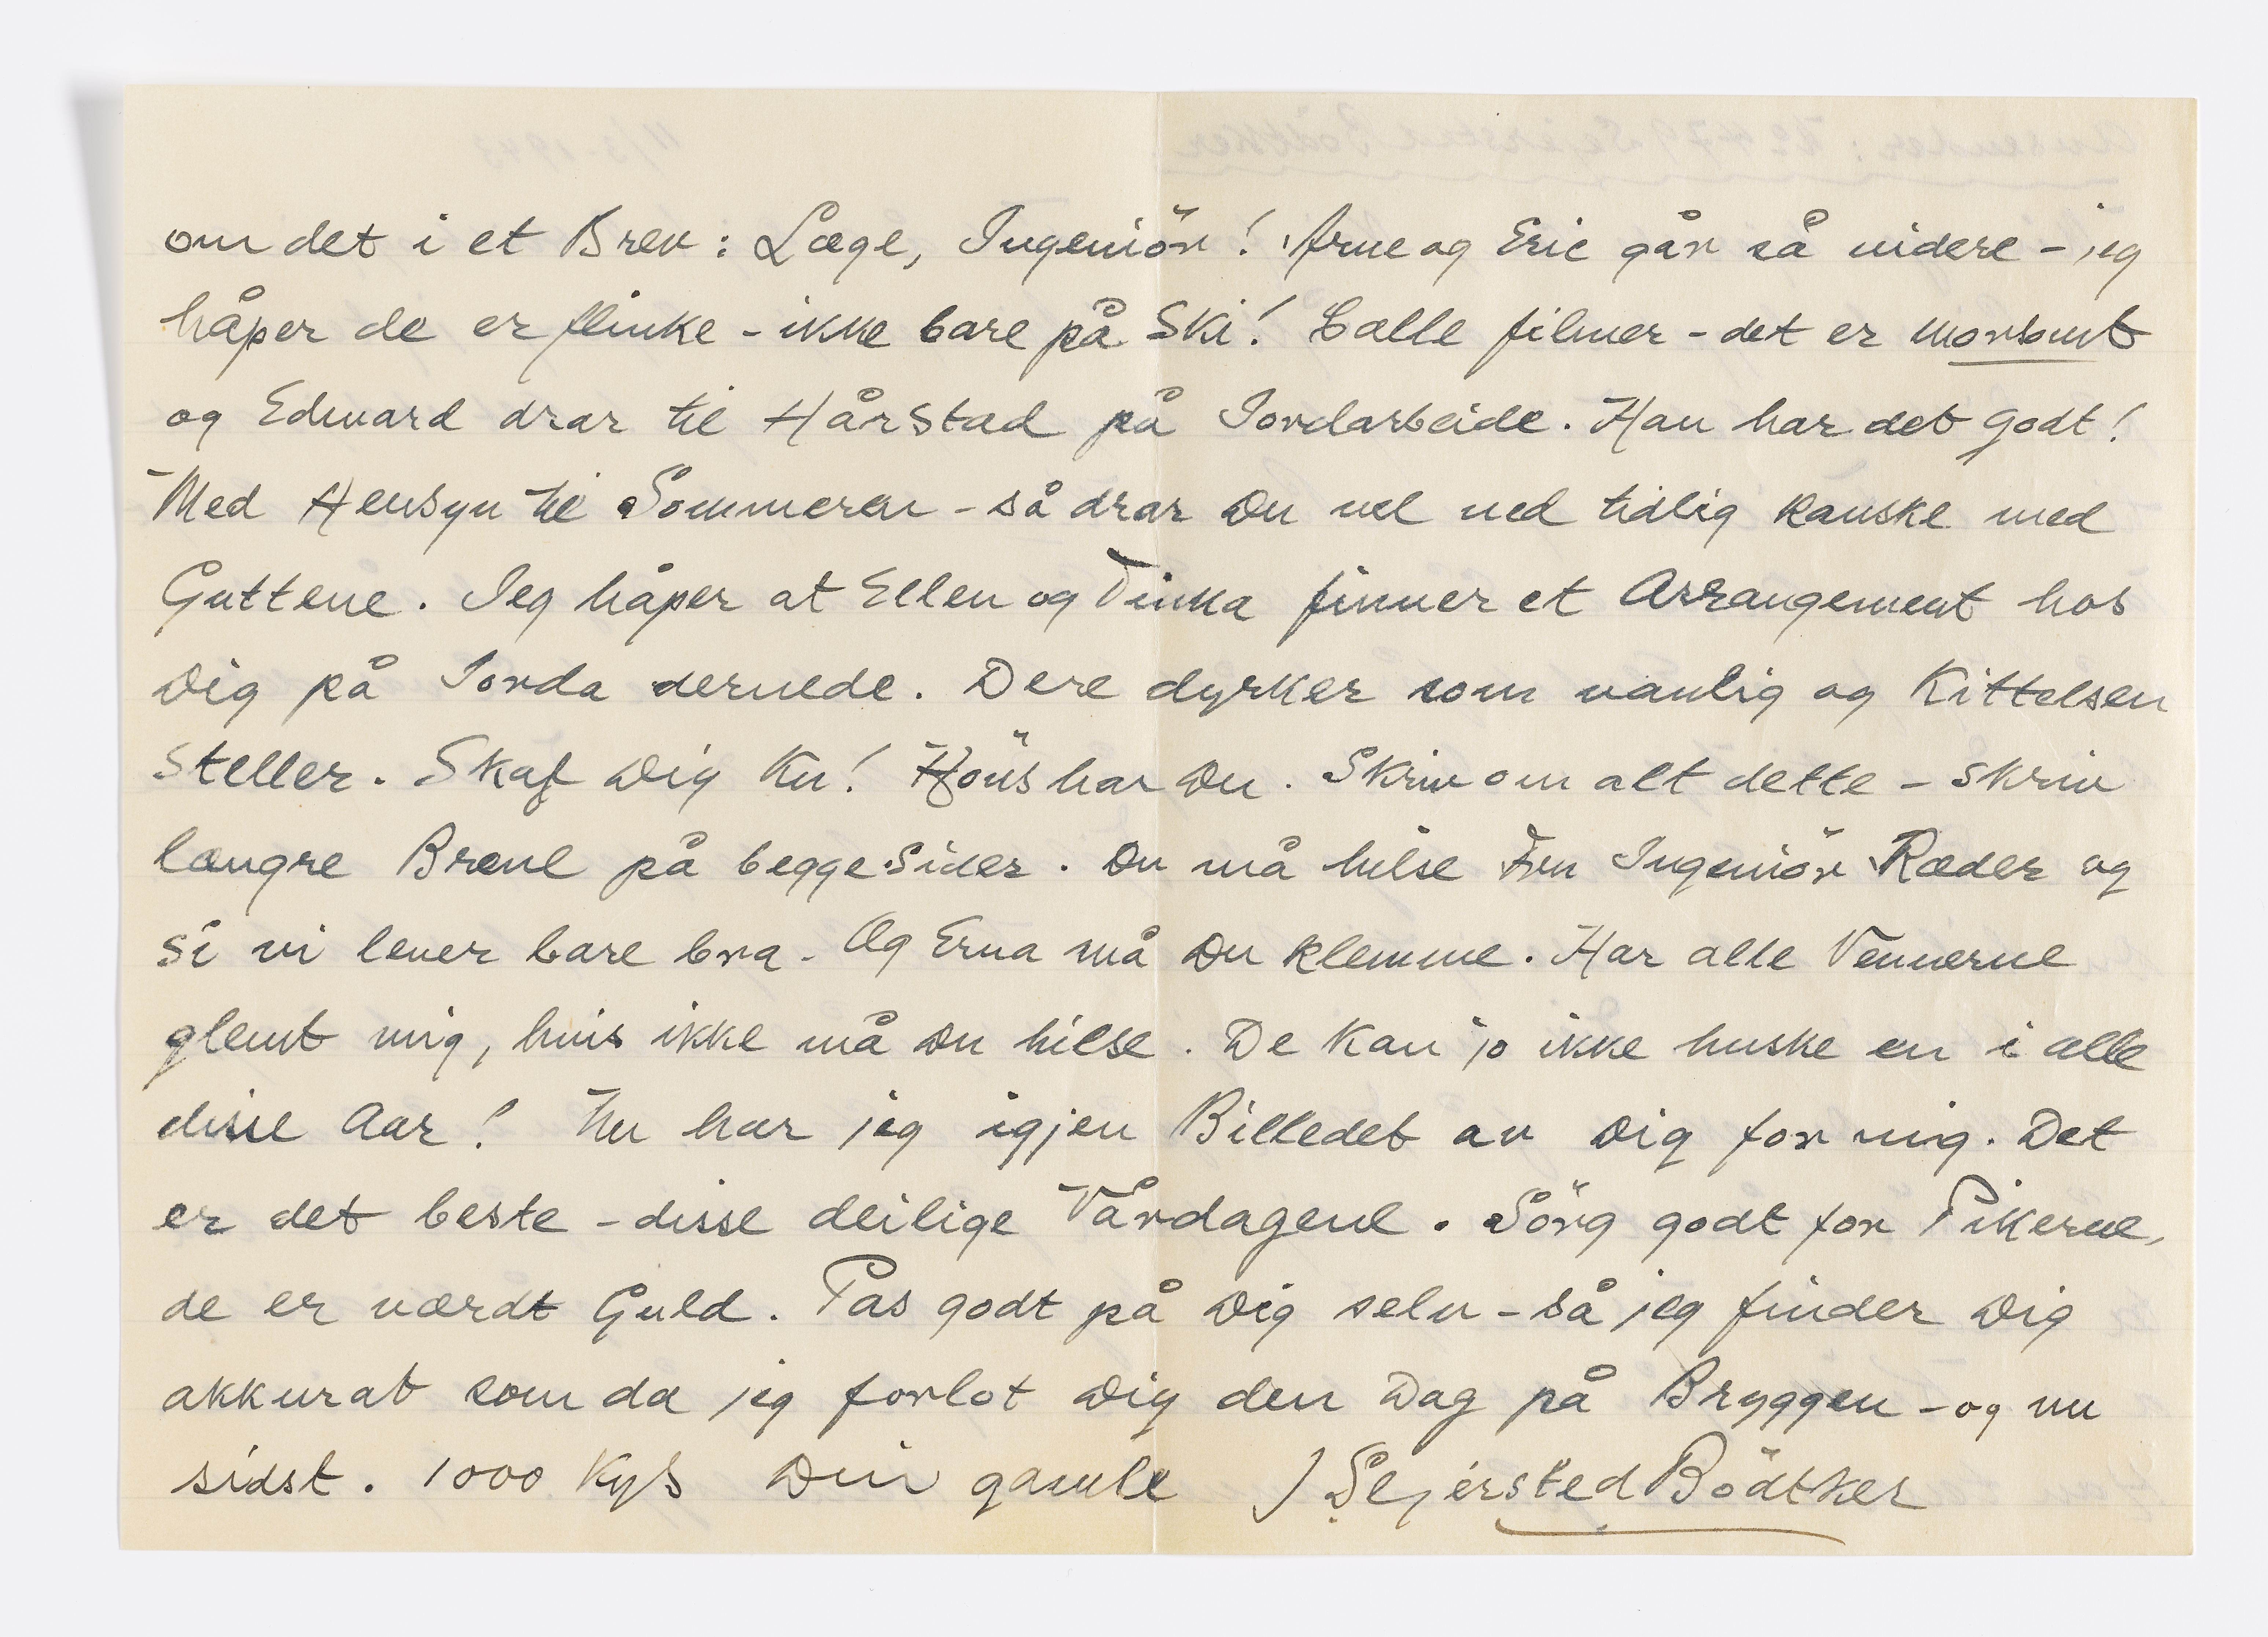 om det i et Brev: Læge, Ingeniör! Arne og Eric går så videre – jeg
håper de er flinke – ikke bare på Ski! Calle filmer – det er morsomt
og Edward drar til Hårstad på Jordarbeide. Han har det godt!
Med Hensyn til Sommeren – så drar Du vel ned tidlig kanske med
Guttene. Jeg håper at Ellen og Tinka finner et Arrangement hos
Dig på Jorda dernede. Dere dyrker som vanlig og Kittelsen
steller. Skaf Dig Ku! Höns har Du. Skriv om alt dette – skriv
længre Breve på begge Sider. Du må hilse Fru Ingeniör Ræder og
si vi lever bare bra. Og Erna må Du klemme. Har alle Vennerne
glemt mig, hvis ikke må Du hilse. De kan jo ikke huske en i alle
disse Aar! Nu har jeg igjen Billedet av Dig for mig. Det
er det beste – disse deilige Vårdagene. Sörg godt for Pikerne,
de er værdt Guld. Pas godt på Dig selv – så jeg finder Dig
akkurat som da jeg forlot Dig den Dag på Bryggen – og nu
sidst. 1000 Kys Din gamle J Sejersted Bödtker